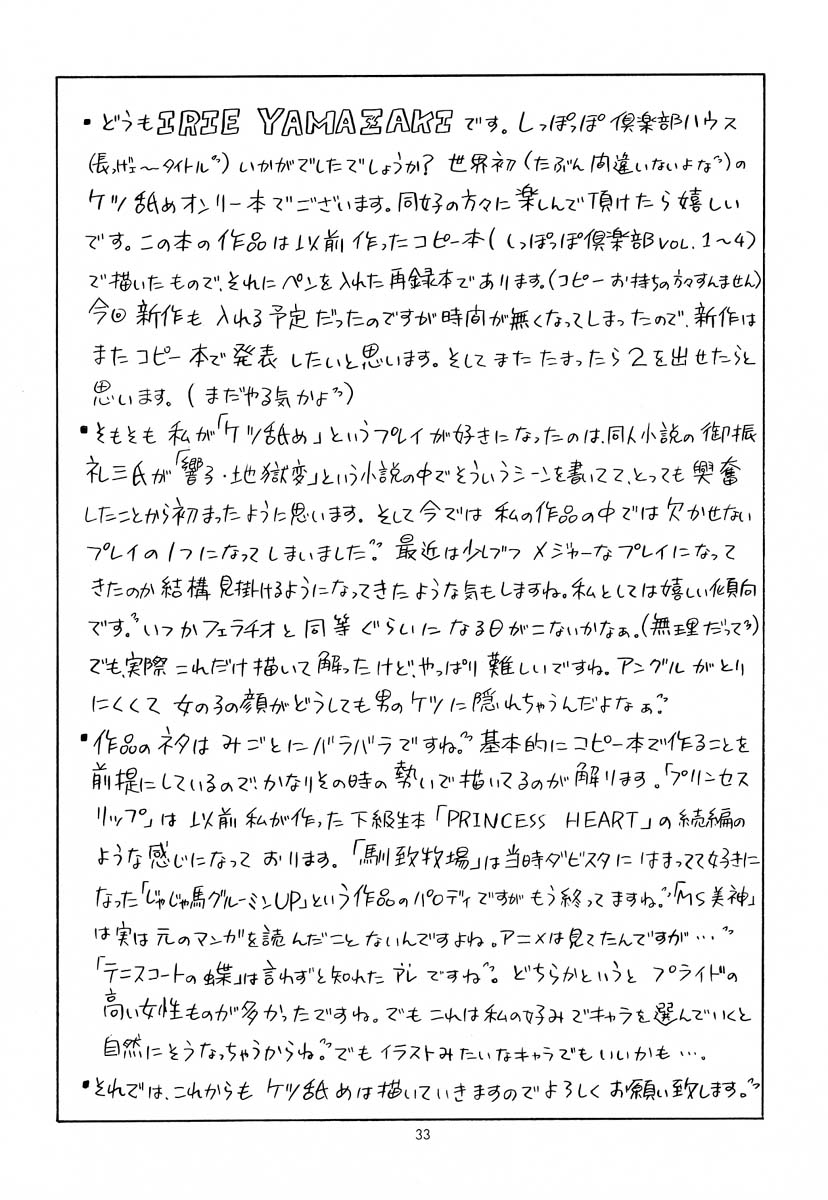 ・どうもIRIE YAMAZAKIです。しっぽっぽ倶楽部ハウス
(長っげェ〜タイトル〃)いかがでしたでしょうか?世界初(たぶん間違いないよな〃)の
ケツ舐めオンリー本でございます。同好の方々に楽しんで頂けたら嬉しい
です。この本の作品は以前作ったコピー本(しっぽっぽ倶楽部VOL.1〜4)
で描いたもので、それにペンを入れた再録本であります。(コピーお持ちの方々すんません)
今回新作も入れる予定だったのですが時間が無くなってしまったので、新作は
またコピー本で発表したいと思います。そしてまたたまったら2を出せたらと
思います。(まだやる気かよ〃)
・そもそも私が「ケツ舐め」というプレイが好きになったのは、同人小説の御振
礼三氏が「響子・地獄変」という小説の中でそういうシーンを書いてて、とっても興奮
したことから初まったように思います。そして今では私の作品の中では欠かせない
プレイの1つになってしまいました〃。最近は少しづつメジャーなプレイになって
きたのか結構見掛けるようになってきたような気もしますね。私としては嬉しい傾向
です。〃いつかフェラチオと同等ぐらいになる日がこないかなぁ。(無理だって〃)
でも、実際これだけ描いて解ったけど、やっぱり難しいですね。アングルがとり
にくくて女の子の顔がどうしても男のケツに隠れちゃうんだよなぁ〃。
・作品のネタはみごとにバラバラですね。〃基本的にコピー本で作ることを
前提にしているので、かなりその時の勢いで描いてるのが解ります。「プリンセス
リップ」は以前私が作った下級生本「PRINCESS HEART」の続編の
ような感じになっております。「馴致牧場」は当時ダビスタにはまってて好きに
なった「じゃじゃ馬グルーミンUP」という作品のパロディですがもう終ってますね。〃「MS美神」
は実は元のマンガを読んだことないんですよね。アニメは見てたんですが…〃
「テニスコートの蝶」は言わずと知れたアレですね〃。どちらかというとプライドの
高い女性ものが多かったですね。でもこれは私の好みでキャラを選んでいくと
自然にそうなっちゃうからね〃。でもイラストみたいなキャラでもいいかも…。
・それでは、これからもケツ舐めは描いていきますのでよろしくお願い致します。〃
33